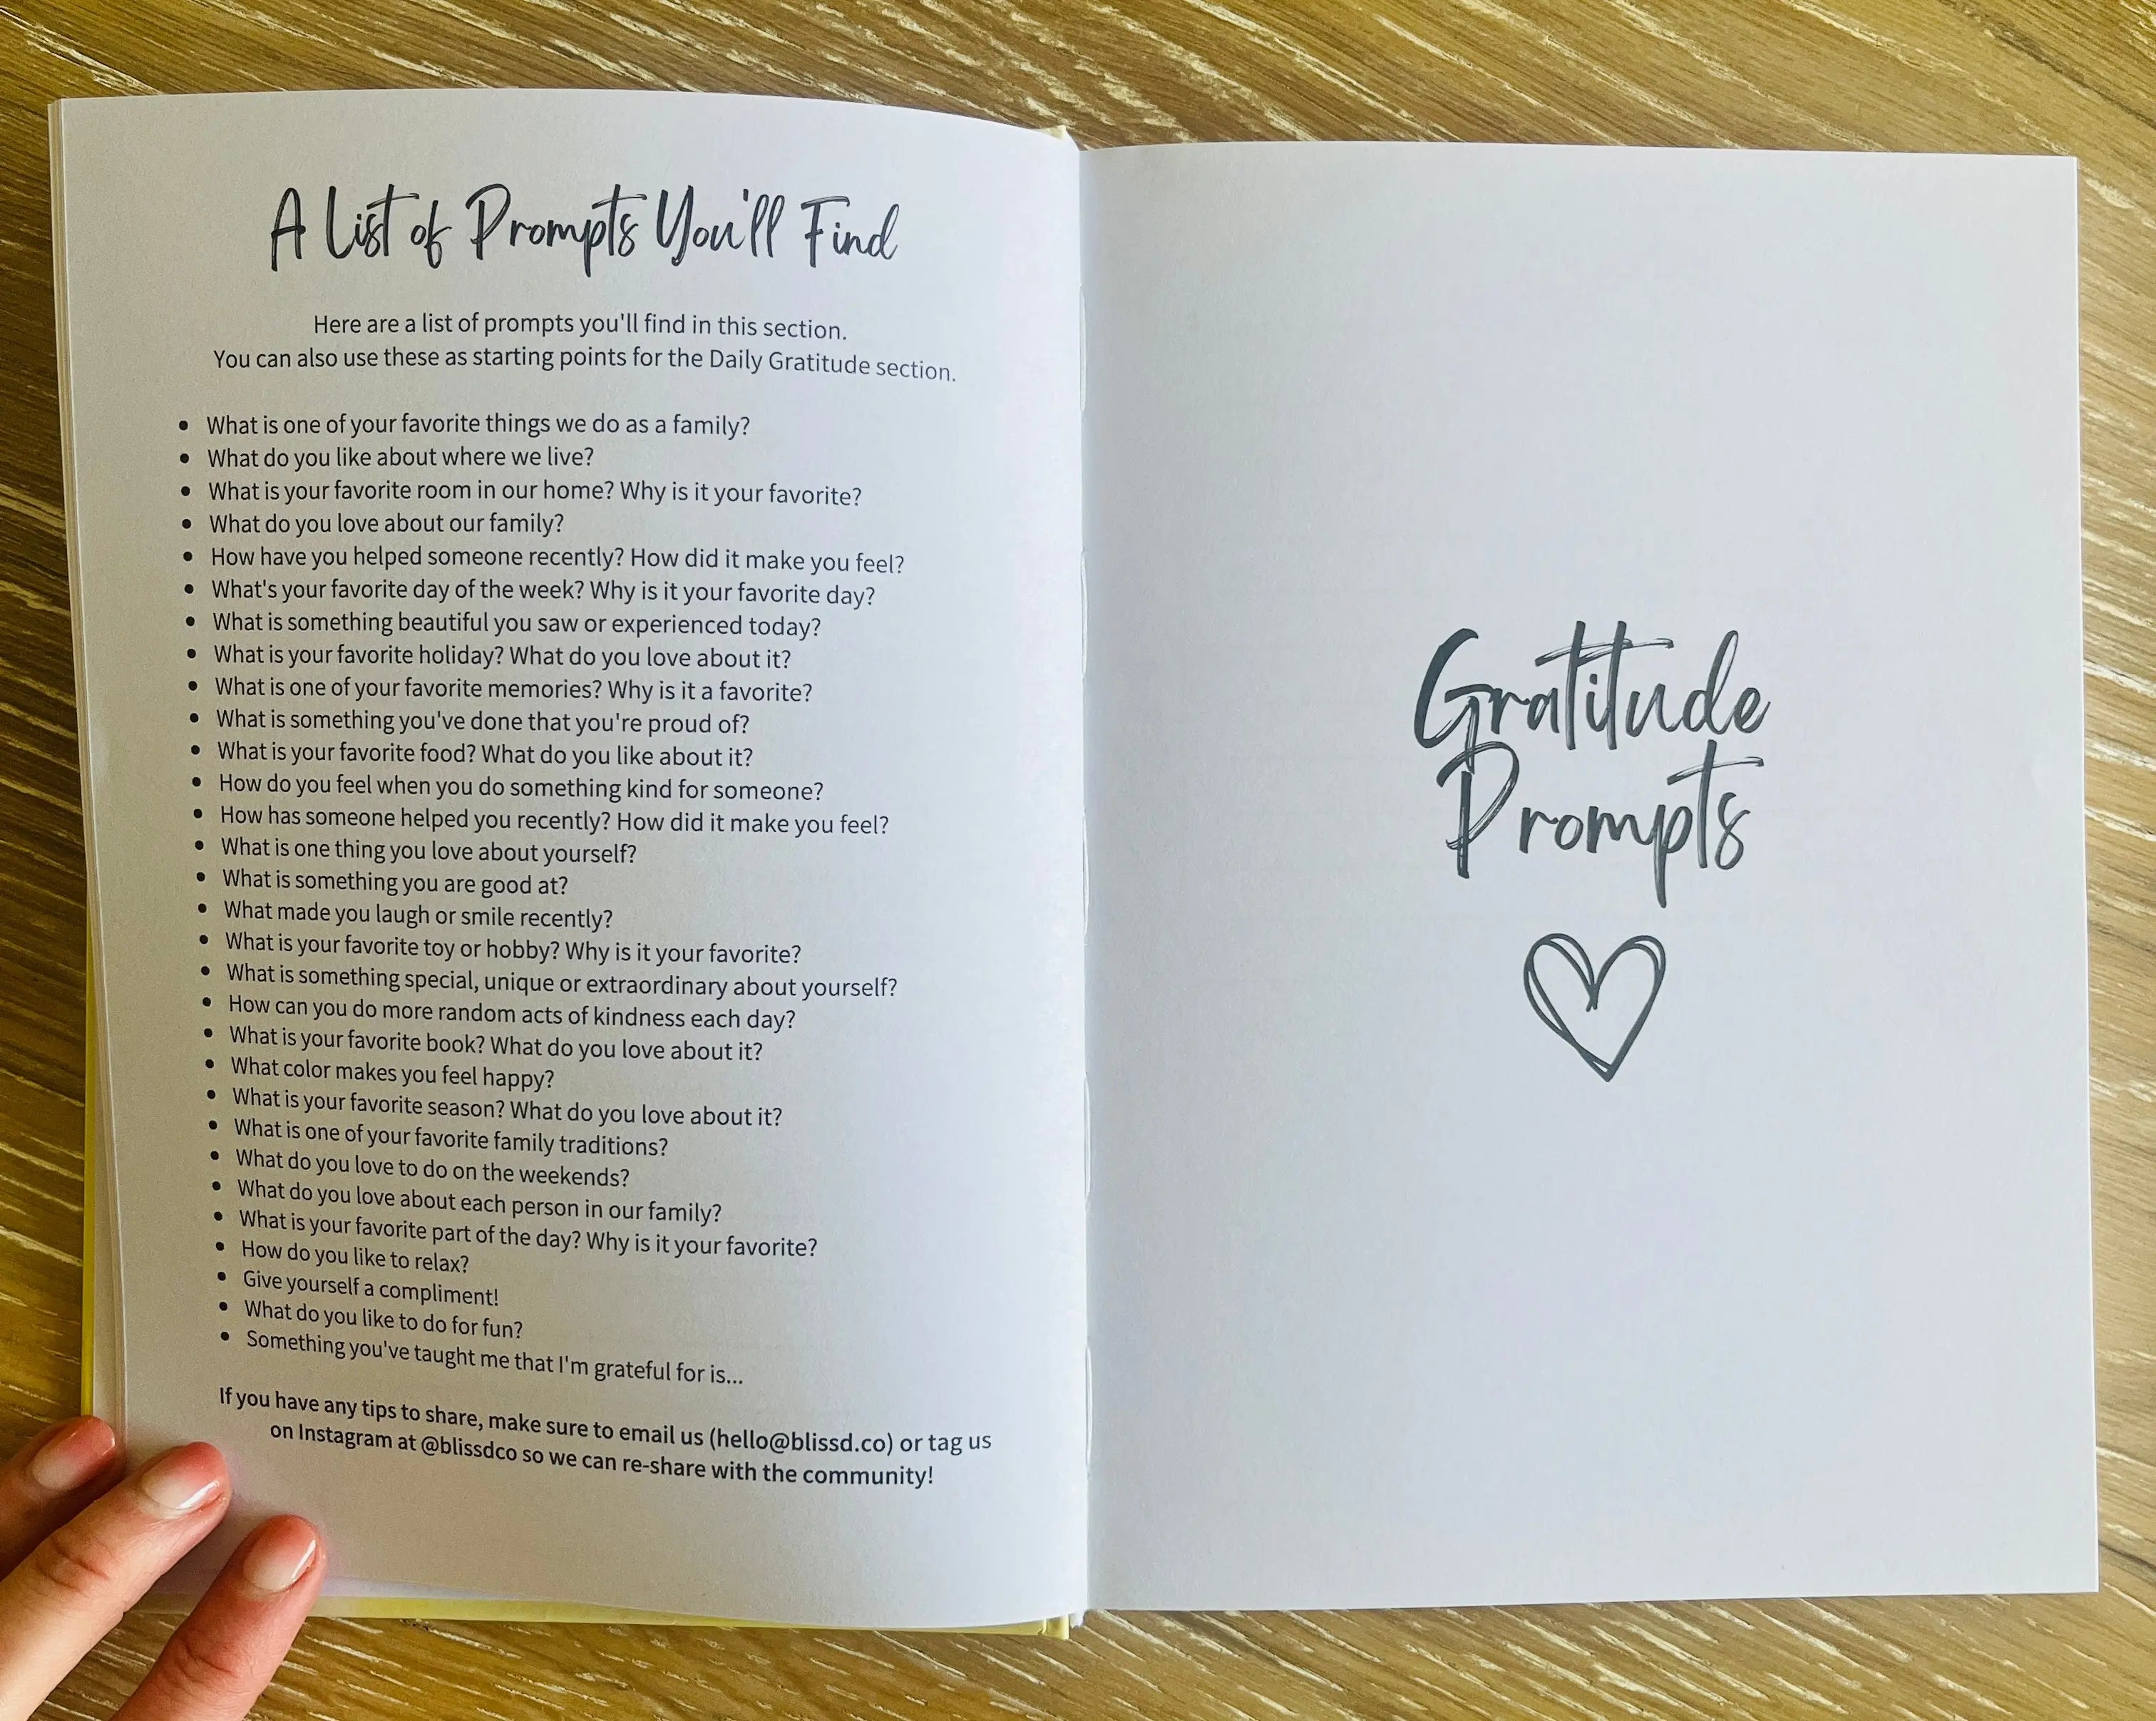 A List of Prompts You'll Find
Here are a list of prompts you'll find in this section.
You can also use these as starting points for the Daily Gratitude section.
• What is one of your favorite things we do as a family?
• What do you like about where we live?
• What is your favorite room in our home? Why is it your favorite?
• What do you love about our family?
• How have you helped someone recently? How did it make you feel?
• What's your favorite day of the week? Why is it your favorite day?
• What is something beautiful you saw or experienced today?
• What is your favorite holiday? What do you love about it?
• What is one of your favorite memories? Why is it a favorite?
• What is something you've done that you're proud of?
• What is your favorite food? What do you like about it?
• How do you feel when you do something kind for someone?
• How has someone helped you recently? How did it make you feel?
• What is one thing you love about yourself?
• What is something you are good at?
• What made you laugh or smile recently?
• What is your favorite toy or hobby? Why is it your favorite?
• What is something special, unique or extraordinary about yourself?
• How can you do more random acts of kindness each day?
• What is your favorite book? What do you love about it?
• What color makes you feel happy?
• What is your favorite season? What do you love about it?
• What is one of your favorite family traditions?
• What do you love to do on the weekends?
• What do you love about each person in our family?
• What is your favorite part of the day? Why is it your favorite?
• How do you like to relax?
• Give yourself a compliment!
• What do you like to do for fun?
• Something you've taught me that I'm grateful for is...
If you have any tips to share, make sure to email us (hello@blissd.co) or tag us
on Instagram at @blissdco so we can re-share with the community!
Gratitude
Prompts